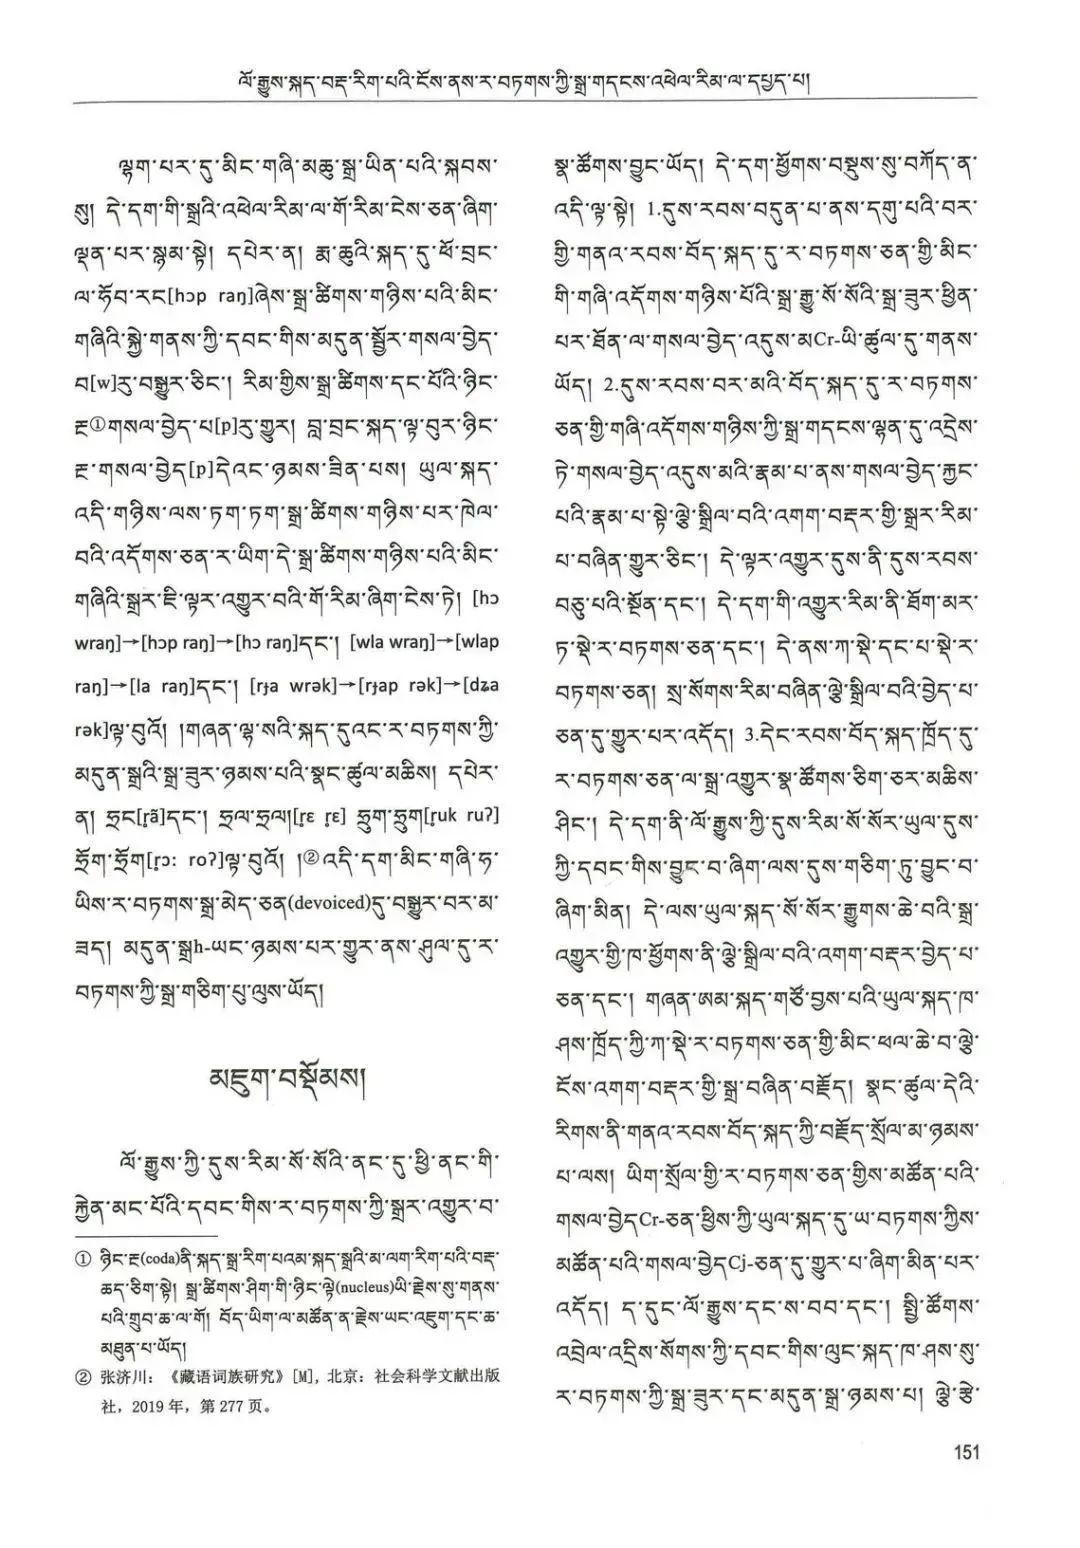 ལོ་རྒྱུས་སྐད་བརྡ་རིག་པའི་ངོས་ནས་ར་བཏགས་ཀྱི་སྒྲ་གདངས་འཕེལ་རིམ་ལ་དཔྱད་པ།
ལྷག་པར་དུ་མིང་གཞི་མཆུ་སྒྲ་ཡིན་པའི་སྐབས་
སུ། དེ་དག་གི་སྒྲའི་འཕེལ་རིམ་ལ་གོ་རིམ་ངེས་ཅན་ཞིག་
ལྡན་པར་སྙམ་སྟེ། དཔེར་ན། རྨ་ཆུའི་སྐད་དུ་ཕོ་བྲང་
ལ་ཧོབ་རང[hɔp raŋ]ཞེས་སྒྲ་ཚིགས་གཉིས་པའི་མིང་
གཞིའི་སྐྱེ་གནས་ཀྱི་དབང་གིས་མདུན་སྦྱོར་གསལ་བྱེད་
བ[w]རུ་བསྒྱུར་ཅིང་། རིམ་གྱིས་སྒྲ་ཚིགས་དང་པོའི་ཉིང་
རྔ①གསལ་བྱེད་པ[p]རུ་གྱུར། བླ་བྲང་སྐད་ལྟ་བུར་ཉིང་
རྔ་གསལ་བྱེད[p]དེའང་ཉམས་ཟིན་པས། ཡུལ་སྐད་
འདི་གཉིས་ལས་ཏག་ཏག་སྒྲ་ཚིགས་གཉིས་པར་ཁེལ་
བའི་འདོགས་ཅན་ར་ཡིག་དེ་སྒྲ་ཚིགས་གཉིས་པའི་མིང་
གཞིའི་སྒྲར་ཇི་ལྟར་འགྱུར་བའི་གོ་རིམ་ཞིག་ངེས་ཏེ། [hɔ
wraŋ]→[hɔp raŋ]→[hɔ raŋ]དང་། [wla wraŋ]→[wlap
raŋ]→[la raŋ]དང་། [rɟa wrək]→[rɟap rək]→[dʑa
rək]ལྟ་བུའོ། །གཞན་ལྷ་སའི་སྐད་དུའང་ར་བཏགས་ཀྱི་
མདུན་སྒྲའི་སྒྲ་ཟུར་ཉམས་པའི་སྣང་ཚུལ་མཆིས། དཔེར་
ན། ཧྲང[r̥ã]དང་། ཧྲལ་ཧྲལ།[r̥ɛ r̥ɛ] ཧྲུག་ཧྲུག[r̥uk ruʔ]
ཧྲོག་ཧྲོག[r̥ɔː roʔ]ལྟ་བུའོ། །②འདི་དག་མིང་གཞི་ཧ་
ཡིས་ར་བཏགས་སྒྲ་མེད་ཅན(devoiced)དུ་བསྒྱུར་བར་མ་
ཟད། མདུན་སྒྲh-ཡང་ཉམས་པར་གྱུར་ནས་ཤུལ་དུ་ར་
བཏགས་ཀྱི་སྒྲ་གཅིག་པུ་ལུས་ཡོད།
མཇུག་བསྡོམས།
ལོ་རྒྱུས་ཀྱི་དུས་རིམ་སོ་སོའི་ནང་དུ་ཕྱི་ནང་གི་
རྐྱེན་མང་པོའི་དབང་གིས་ར་བཏགས་ཀྱི་སྒྲར་འགྱུར་བ་
① ཉིང་རྔ(coda)ནི་སྐད་སྒྲ་རིག་པའམ་སྐད་སྒྲའི་མ་ལག་རིག་པའི་བརྡ་
ཆད་ཅིག་སྟེ། སྒྲ་ཚིགས་ཤིག་གི་ཉིང་ལྟེ(nucleus)ཡི་རྗེས་སུ་གནས་
པའི་གྲུབ་ཆ་ལ་གོ། བོད་ཡིག་ལ་མཚོན་ན་རྗེས་ཡང་འཇུག་དང་ཆ་
མཐུན་པ་ཡོད།
② 张济川：《藏语词族研究》[M]，北京：社会科学文献出版
社，2019 年，第 277 页。
སྣ་ཚོགས་བྱུང་ཡོད། དེ་དག་ཕྱོགས་བསྡུས་སུ་བཀོད་ན་
འདི་ལྟ་སྟེ། 1.དུས་རབས་བདུན་པ་ནས་དགུ་པའི་བར་
གྱི་གནའ་རབས་བོད་སྐད་དུ་ར་བཏགས་ཅན་གྱི་མིང་
གི་གཞི་འདོགས་གཉིས་པོའི་སྒྲ་རྒྱུ་སོ་སོའི་སྒྲ་ཟུར་ཕྱིན་
པར་ཐོན་ལ་གསལ་བྱེད་འདུས་མCr-ཡི་ཚུལ་དུ་གནས་
ཡོད། 2.དུས་རབས་བར་མའི་བོད་སྐད་དུ་ར་བཏགས་
ཅན་གྱི་གཞི་འདོགས་གཉིས་ཀྱི་སྒྲ་གདངས་ལྷན་དུ་འདྲེས་
ཏེ་གསལ་བྱེད་འདུས་མའི་རྣམ་པ་ནས་གསལ་བྱེད་རྐྱང་
པའི་རྣམ་པ་སྟེ་ལྕེ་སྒྲིལ་བའི་འགག་བརྡར་གྱི་སྒྲར་རིམ་
པ་བཞིན་གྱུར་ཅིང་། དེ་ལྟར་འགྱུར་དུས་ནི་དུས་རབས་
བཅུ་པའི་སྔོན་དང་། དེ་དག་གི་འགྱུར་རིམ་ནི་ཐོག་མར་
ཏ་སྡེ་ར་བཏགས་ཅན་དང་། དེ་ནས་ཀ་སྡེ་དང་པ་སྡེ་ར་
བཏགས་ཅན། སྲ་སོགས་རིམ་བཞིན་ལྕེ་སྒྲིལ་བའི་བྱེད་པ་
ཅན་དུ་གྱུར་པར་འདོད། 3.དེང་རབས་བོད་སྐད་ཁྲོད་དུ་
ར་བཏགས་ཅན་ལ་སྒྲ་འགྱུར་སྣ་ཚོགས་ཅིག་ཅར་མཆིས་
ཤིང་། དེ་དག་ནི་ལོ་རྒྱུས་ཀྱི་དུས་རིམ་སོ་སོར་ཡུལ་དུས་
ཀྱི་དབང་གིས་བྱུང་བ་ཞིག་ལས་དུས་གཅིག་ཏུ་བྱུང་བ་
ཞིག་མིན། དེ་ལས་ཡུལ་སྐད་སོ་སོར་རྒྱུགས་ཆེ་བའི་སྒྲ་
འགྱུར་གྱི་ཁ་ཕྱོགས་ནི་ལྕེ་སྒྲིལ་བའི་འགག་བརྡར་བྱེད་པ་
ཅན་དང་། གཞན་ཨམ་སྐད་གཙོ་བྱས་པའི་ཡུལ་སྐད་ཁ་
ཤས་ཁྲོད་ཀྱི་ཀ་སྡེ་ར་བཏགས་ཅན་གྱི་མིང་ཕལ་ཆེ་བ་ལྕེ་
ངོས་འགག་བརྡར་གྱི་སྒྲ་བཞིན་བརྗོད། སྣང་ཚུལ་དེའི་
རིགས་ནི་གནའ་རབས་བོད་སྐད་ཀྱི་བརྗོད་སྲོལ་མ་ཉམས་
པ་ལས། ཡིག་སྲོལ་གྱི་ར་བཏགས་ཅན་གྱིས་མཚོན་པའི་
གསལ་བྱེདCr-ཅན་ཕྱིས་ཀྱི་ཡུལ་སྐད་དུ་ཡ་བཏགས་ཀྱིས་
མཚོན་པའི་གསལ་བྱེདCj-ཅན་དུ་གྱུར་པ་ཞིག་མིན་པར་
འདོད། ད་དུང་ལོ་རྒྱུས་དང་ས་བབ་དང་། སྤྱི་ཚོགས་
འབྲེལ་འདྲིས་སོགས་ཀྱི་དབང་གིས་ལུང་སྐད་ཁ་ཤས་སུ་
ར་བཏགས་ཀྱི་སྒྲ་ཟུར་དང་མདུན་སྒྲ་ཉམས་པ། ལྕེ་རྩེ་
151